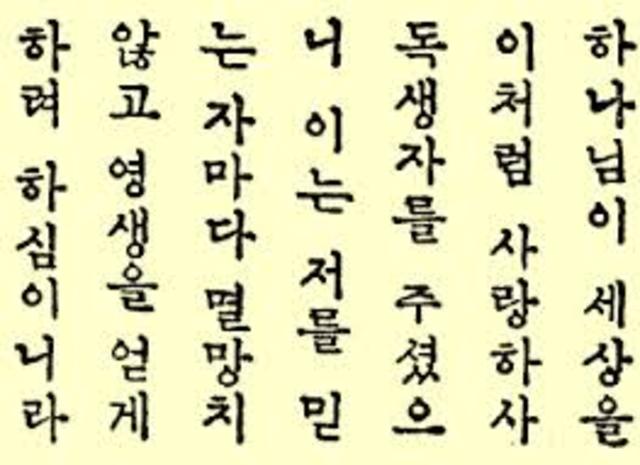 하나님이 세상을
이처럼 사랑하사
독생자를 주셨으
니 이는 저를 믿
는 자마다 멸망치
않고 영생을 얻게
하려 하심이니라